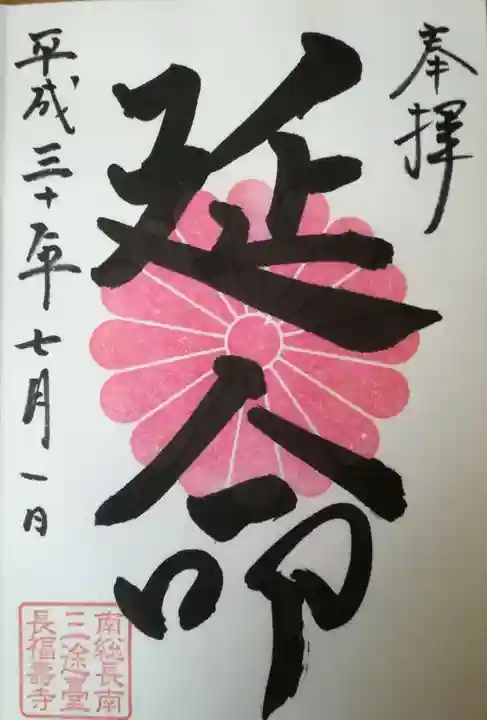 奉拝
延命
平成三十年七月一日
南総長南
三途臺
長福壽寺